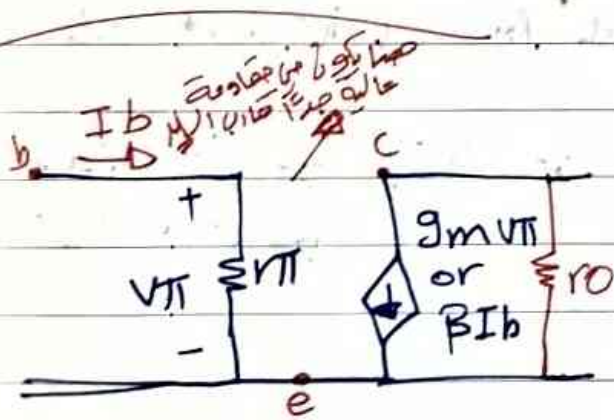 هنا يكون في مقاومة
عالية جدًا
Ib
b
c
+
Vπ
rπ
-
gmVπ
or
βIb
ro
e